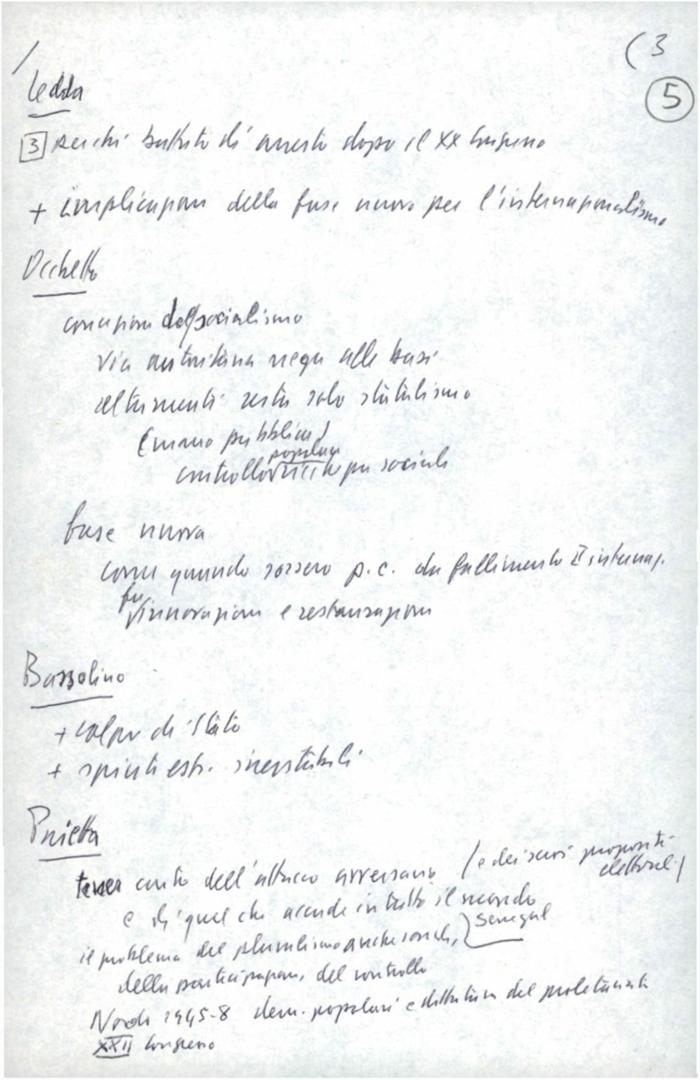 (3
5
Ledda
3 perché battuta di arresto dopo il XX Congresso
+ implicazioni della fase nuova per l'internazionalismo
Occhetto
concezione del socialismo
via autoritaria nega alle basi
altrimenti resta solo statalismo
(mano pubblica)
popolare
controllo sociale
fase nuova
come quando sorsero p.c. da fallimento II internaz.
fu innovazione e restaurazione
Bassolino
+ colpo di Stato
+ spinte est. inevitabili
Pajetta
tener conto dell'attacco avversario (e dei suoi propositi
elettorali)
e di quel che accade in tutto il mondo
Senegal
il problema del pluralismo anche
della partecipazione, del controllo
1945-8 dem. popolari e dittatura del proletariato
XXII Congresso